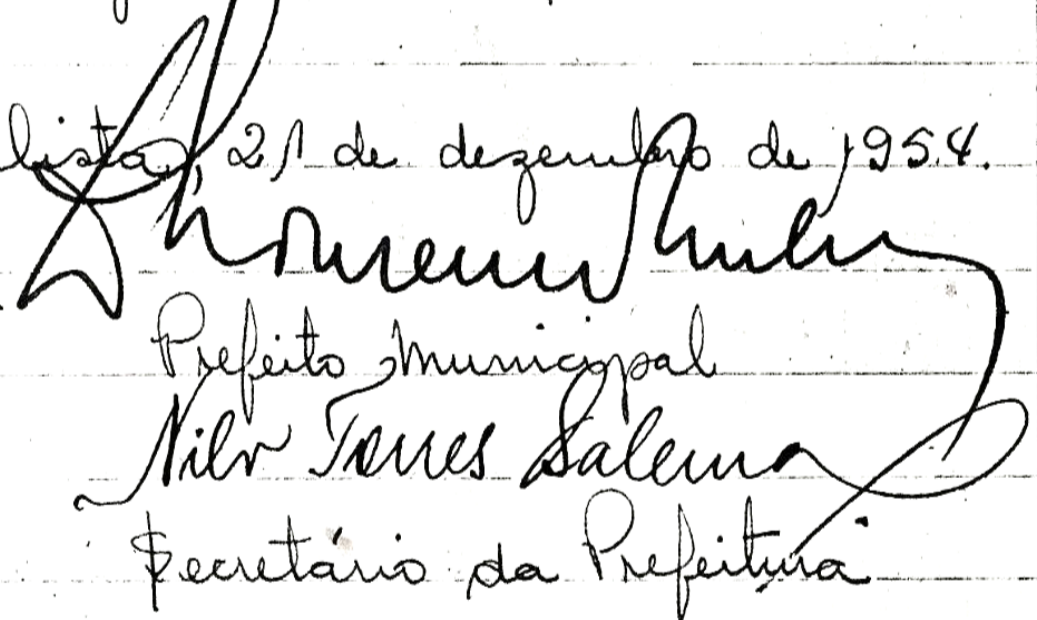 lista, 21 de dezembro de 1954.
Prefeito Municipal
Nilo Torres Salema
Secretário da Prefeitura